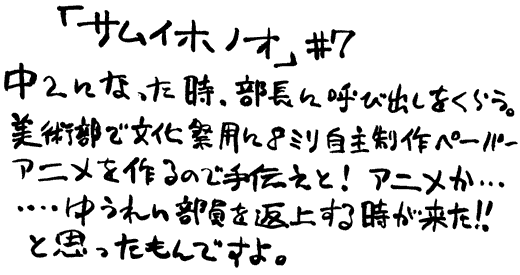 「サムイホノオ」#7
中2になった時、部長に呼び出しをくらう。
美術部で文化祭用に8ミリ自主制作ペーパー
アニメを作るので手伝えと！アニメか…
‥‥ゆうれい部員を返上する時が来た!!
と思ったもんですよ。